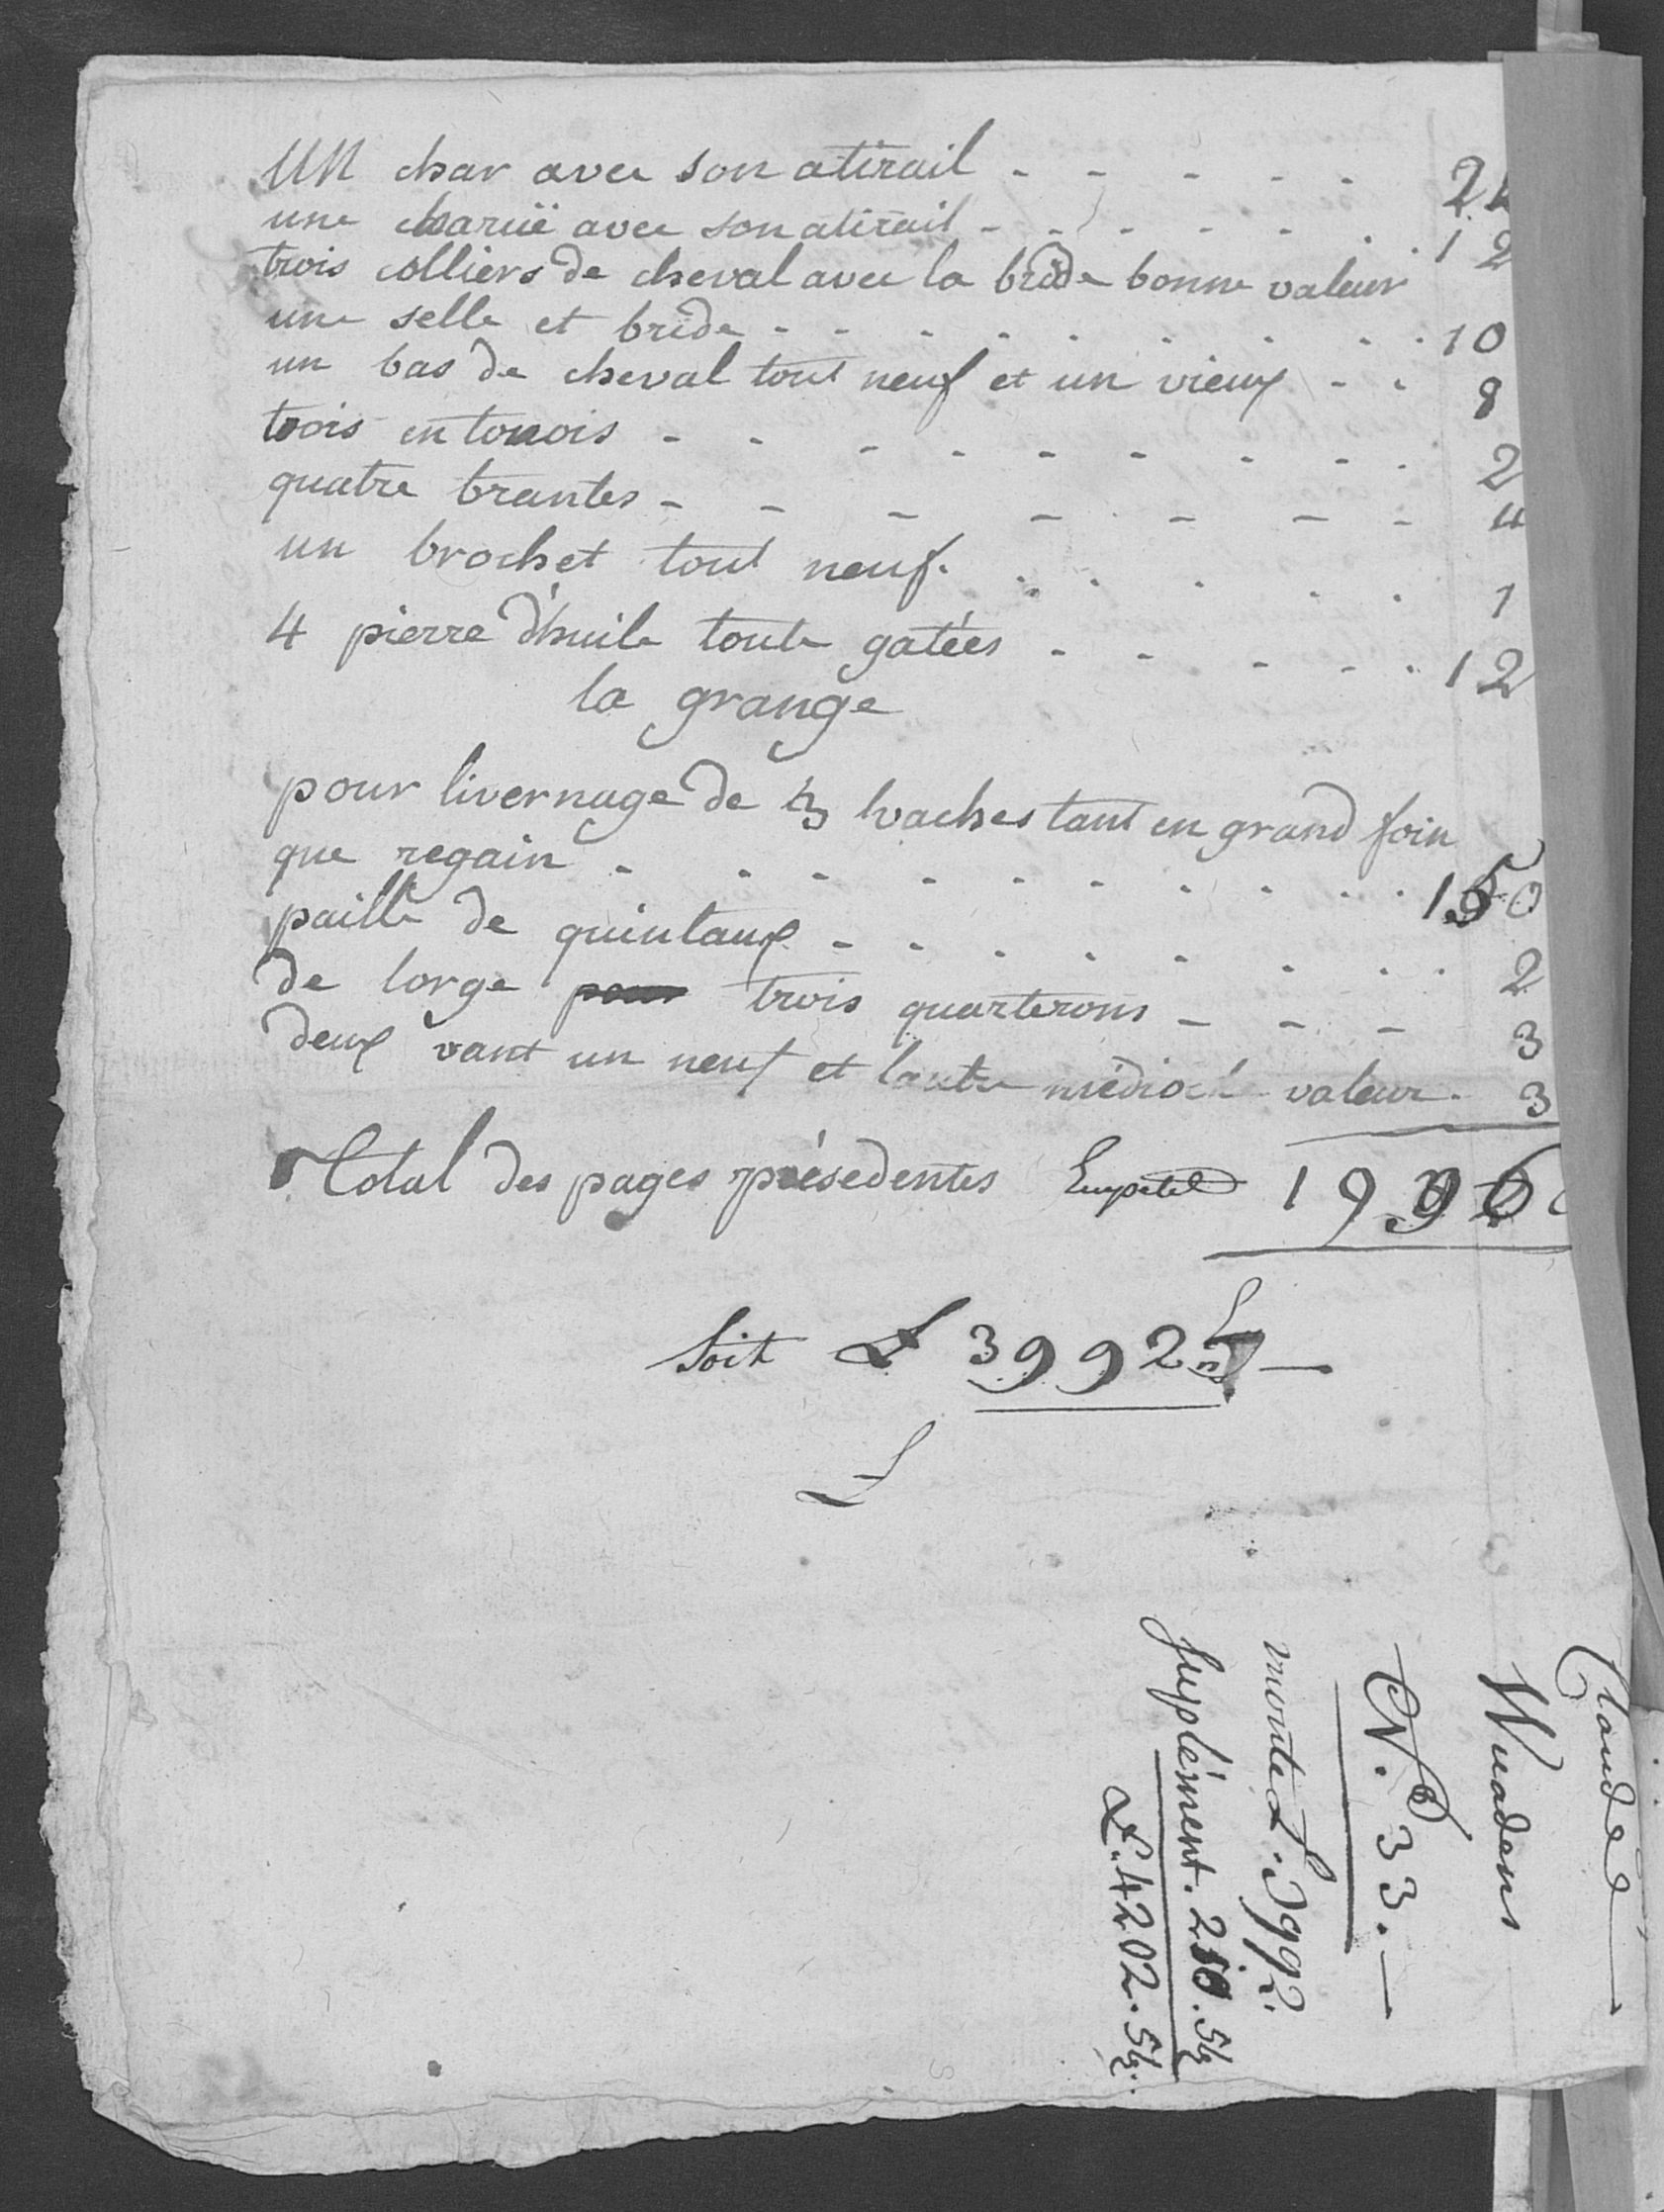 UN char avec son atirail - - - - - 2
une charüe avec son atirail - - - - - - 12
trois colliers de cheval avec la bride bonne valeur
une selle et bride - - - - - - - - 10
un bas de cheval tout neuf et un vieux - - 8
trois entonois - - - - - - - - - 2
quatre brantes - - - - - - - 4
un brochet tout neuf - - - - - - 1
4 pierre d'huile toute gatées - - - - - 12
la grange
pour livernage de vaches tant en grand foin
que regain - - - - - - - - - 150
paille de quintaux - - - - - - - - 2
de lorge trois quarterons - - - 3
deux vant un neuf et lautre médiocre valeur - 3
Total des pages présedentes 1996
Soit £ 3992 —
£
Claudel —
Wuadens
N.º 33. —
monte £. 3992.
Suplément. 210. 5½
£. 4202. 5½.